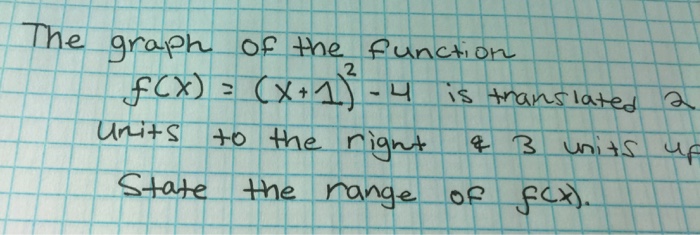 The graph of the function
f(x) = (x+1)² - 4 is translated 2
units to the right & 3 units up
State the range of f(x).